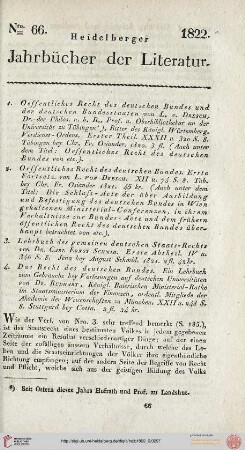 Nro. 66.
Heidelberger
1822.
Jahrbücher der Literatur.
1. Oeffentliches Recht des deutschen Bundes und
der deutschen Bundesstaaten von L. v. Dresch,
Dr. der Philos. u. b. R., Prof. u. Oberbibliothekar an der
Universität zu Tübingen*), Ritter des Königl. Würtemberg.
Ferdinan- Ordens. Erster Theil XXXII u. 320 S. 8.
Tübingen bey Chr. Fr. Osiander, 1820. 3 fl. (Auch unter
dem Titel: Oeffentliches Recht des deutschen
Bundes von etc.).
2. Oeffentliches Recht des deutschen Bundes. Erste
Fortsetz. von L. von Dresch. XII u. 78 S. 8. Tüb.
bey Chr. Fr. Osiander 1821. 48 kr. (Auch unter dem
Titel: Die Schluss-Akte der über Ausbildung
und Befestigung des deutschen Bundes in Wien
gehaltenen Ministerial-Conferenzen, in ihrem
Verhältnisse zur Bundes-Acte und dem frühern
öffentlichen Rechte des deutschen Bundes über-
haupt betrachtet von etc.).
3. Lehrbuch des positiven deutschen Staats-Rechts
von Dr. Carl Ernst Schmid. Erste Abtheil. IV u.
340 S. 8. Jena bey August Schmid. 1821. 2 fl.
4. Das Recht des deutschen Bundes. Ein Lehrbuch
zum Gebrauche bey Vorlesungen auf deutschen Universitäten
von Dr. Behr, Königl. Baierischen Ministerial-Rathe
im Staatsministerium der Finanzen, ordentl. Mitgliede der
Akademie der Wissenschaften zu München. XXII u. 248 S.
8. Stuttgard bey Cotta. 2 fl. 24 kr.
Wie der Verf. von Nro. 3. sehr treffend bemerkt (S. 185.),
ist das Staatsrecht eines bestimmten Volkes in jedem gegebenen
Zeitraume das Resultat verschiedenartiger Dinge; auf der einen
Seite der zufälligen äussern Verhältnisse, durch welche das Le-
ben und die Staatseinrichtungen der Völker ihre eigenthümliche
Richtung empfangen; auf der andern Seite der Begriffe von Recht
und Pflicht, und der Ansichten von den Zwecken des Lebens,
*) Seit Ostern dieses Jahrs Hofrath und Prof. zu Landshut.
66